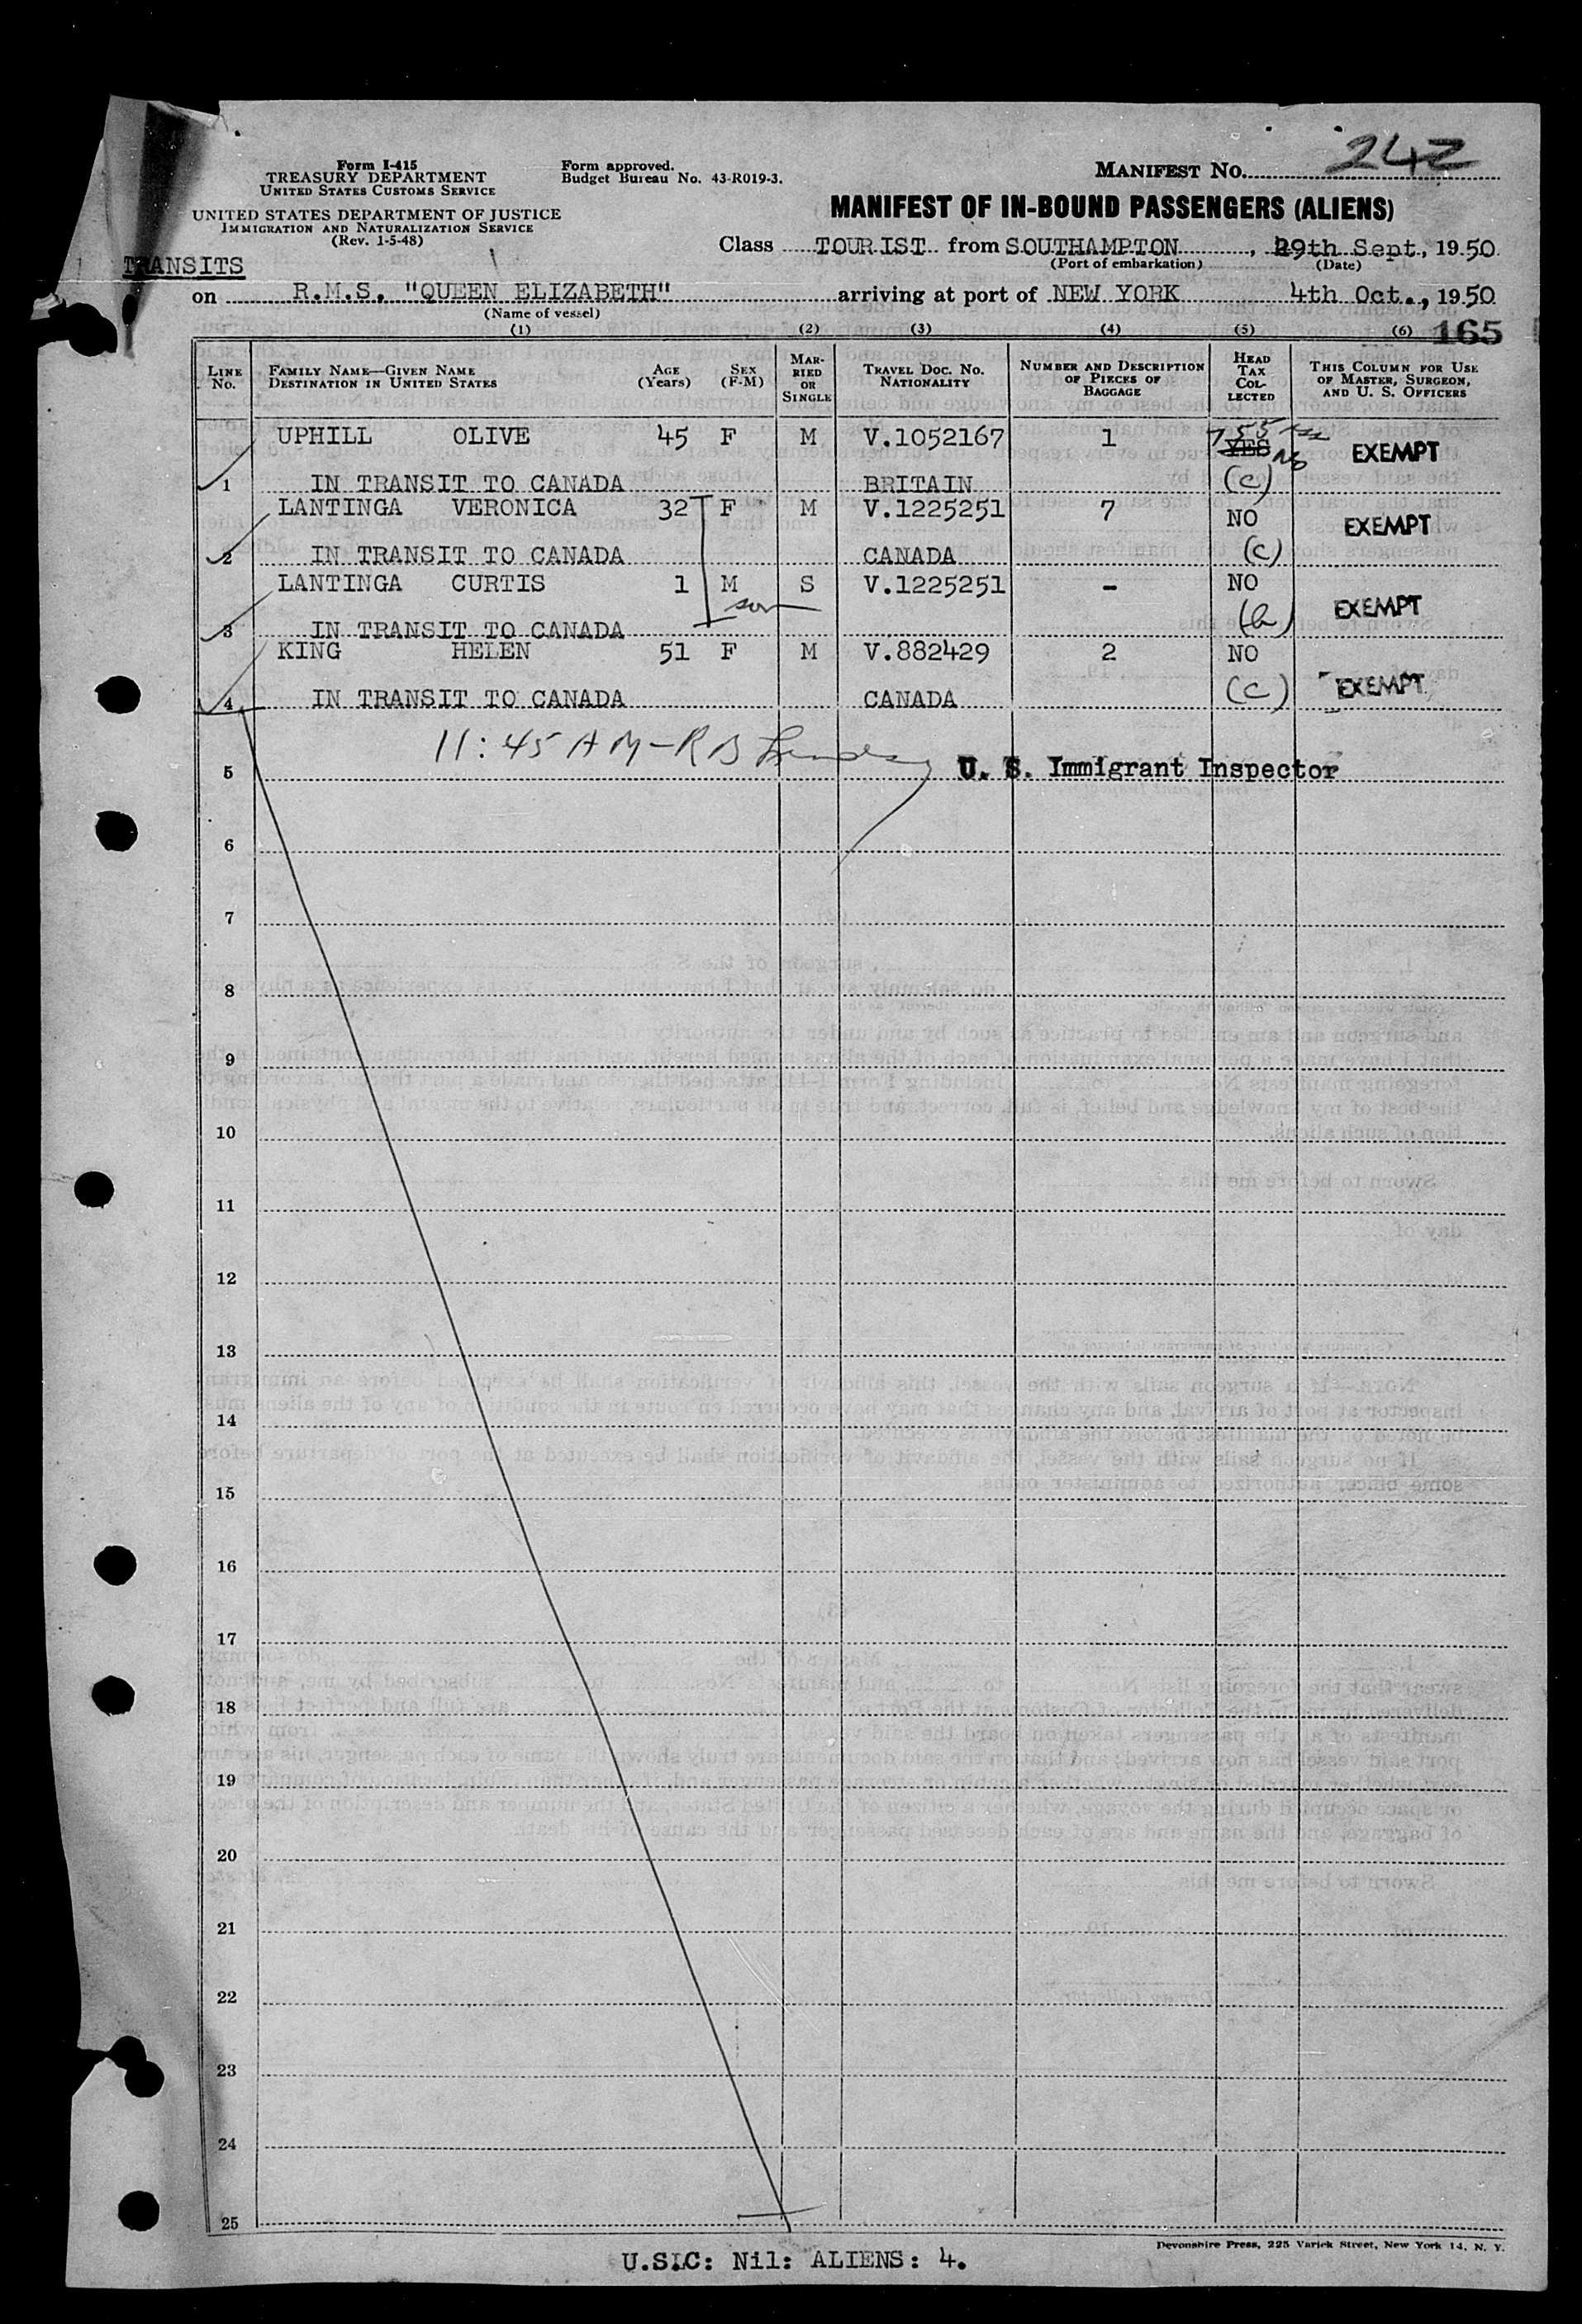 Form I-415
TREASURY DEPARTMENT
UNITED STATES CUSTOMS SERVICE
Form approved.
Budget Bureau No. 43-R019-3.
MANIFEST NO. 242
UNITED STATES DEPARTMENT OF JUSTICE
IMMIGRATION AND NATURALIZATION SERVICE
(Rev. 1-5-48)
MANIFEST OF IN-BOUND PASSENGERS (ALIENS)
Class TOURIST from SOUTHAMPTON, 29th Sept, 1950
(Port of embarkation) (Date)
TRANSITS
on R.M.S. "QUEEN ELIZABETH" arriving at port of NEW YORK 4th Oct., 1950
(Name of vessel)
(1) (2) (3) (4) (5) (6) 165
LINE NO. FAMILY NAME—GIVEN NAME DESTINATION IN UNITED STATES AGE (Years) SEX (F-M) MARRIED OR SINGLE TRAVEL DOC. NO. NATIONALITY NUMBER AND DESCRIPTION OF PIECES OF BAGGAGE HEAD TAX COLLECTED THIS COLUMN FOR USE OF MASTER, SURGEON, AND U. S. OFFICERS
UPHILL OLIVE 45 F M V.1052167 1 YES No EXEMPT
1 IN TRANSIT TO CANADA BRITAIN (c)
LANTINGA VERONICA 32 F M V.1225251 7 NO EXEMPT
2 IN TRANSIT TO CANADA CANADA (c)
LANTINGA CURTIS 1 M S V.1225251 - NO EXEMPT
son
3 IN TRANSIT TO CANADA
KING HELEN 51 F M V.882429 2 NO EXEMPT
4 IN TRANSIT TO CANADA CANADA (c)
11:45 AM - R B
5 U. S. Immigrant Inspector
6
7
8
9
10
11
12
13
14
15
16
17
18
19
20
21
22
23
24
25
Devonshire Press, 225 Varick Street, New York 14, N. Y.
U.S.C: Nil: ALIENS: 4.